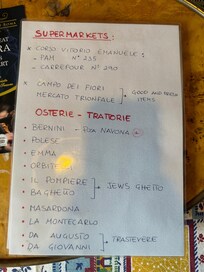 SUPERMARKETS:
• CORSO VITTORIO EMANUELE:
- PAM N° 235
- CARREFOUR N° 290
• CAMPO DEI FIORI
MERCATO TRIONFALE
GOOD AND FRESH
ITEMS
OSTERIE - TRATTORIE
• BERNINI - P.ZZA NAVONA
• POLESE
• EMMA
• ORBIT
• IL POMPIERE
• BAGHETTO
JEWS GHETTO
• MASARDONA
• LA MONTECARLO
• DA AUGUSTO
• DA GIOVANNI
TRASTEVERE